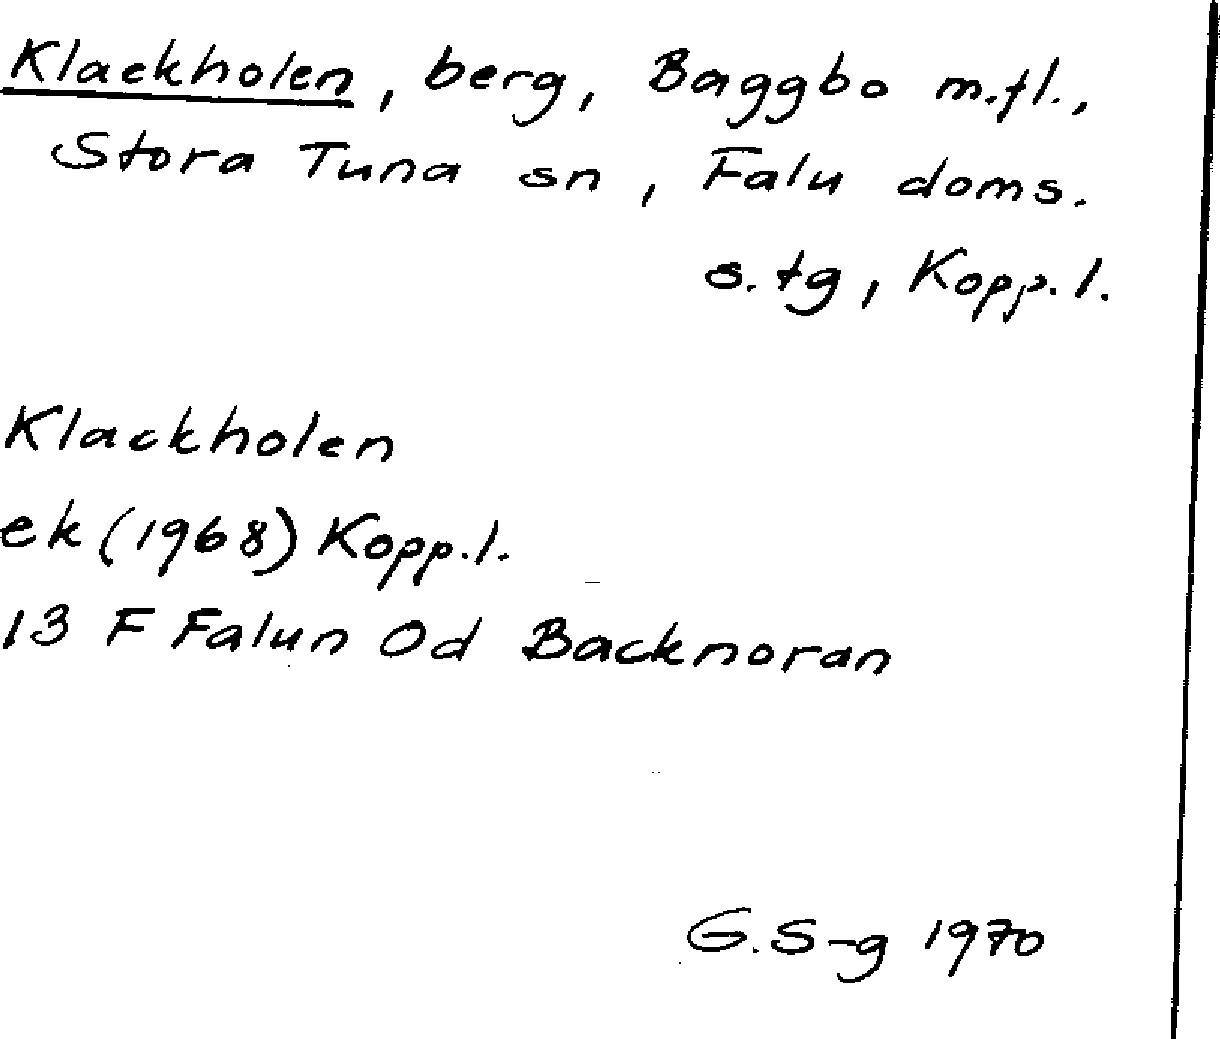 Klackholen, berg, Baggbo m.fl.,
Stora Tuna sn, Falu doms.
s. tg, Kopp. l.
Klackholen
ek (1968) Kopp. l.
13 F Falun Od Backnoran
G. S-g 1970